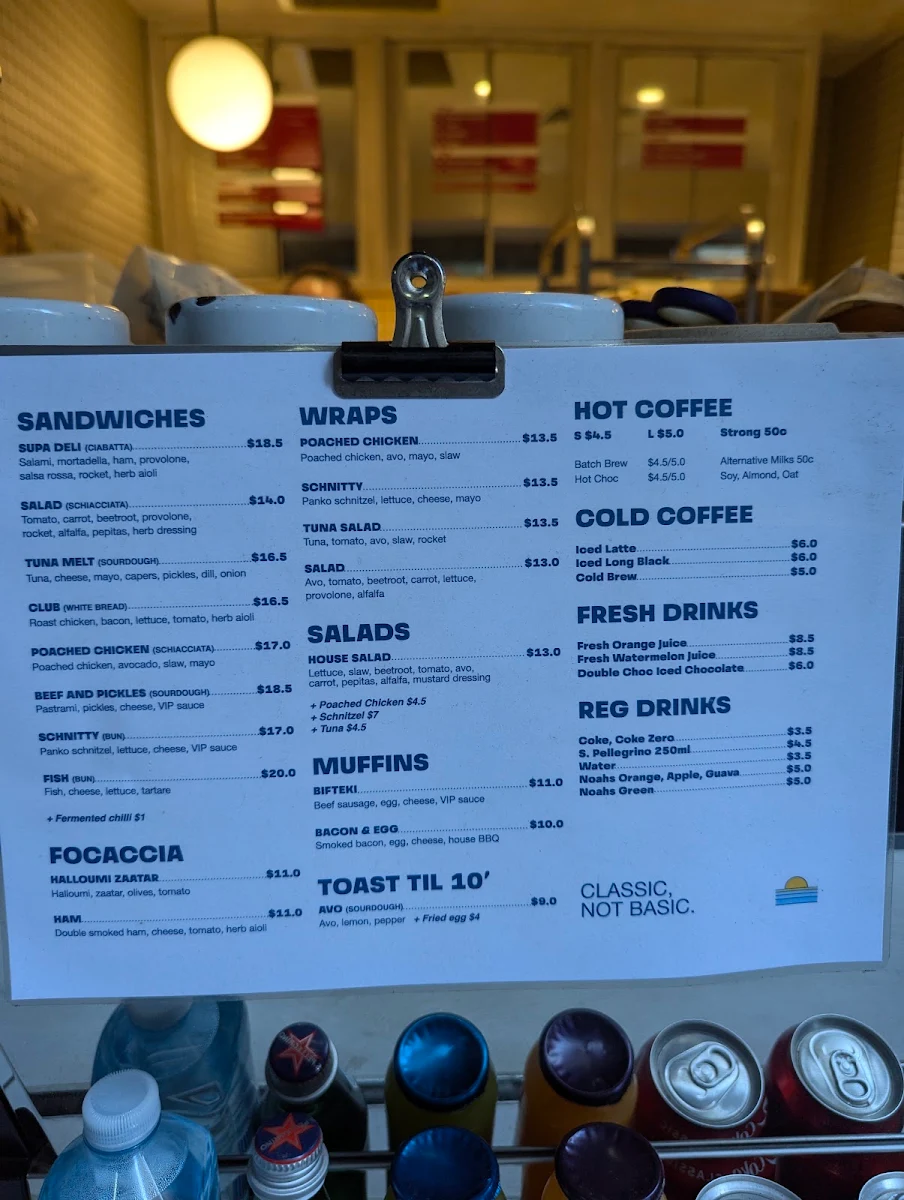 SANDWICHES
SUPA DELI (CIABATTA) $18.5
Salami, mortadella, ham, provolone,
salsa rossa, rocket, herb aioli
SALAD (SCHIACCIATA) $14.0
Tomato, carrot, beetroot, provolone,
rocket, alfalfa, pepitas, herb dressing
TUNA MELT (SOURDOUGH) $16.5
Tuna, cheese, mayo, capers, pickles, dill, onion
CLUB (WHITE BREAD) $16.5
Roast chicken, bacon, lettuce, tomato, herb aioli
POACHED CHICKEN (SCHIACCIATA) $17.0
Poached chicken, avocado, slaw, mayo
BEEF AND PICKLES (SOURDOUGH) $18.5
Pastrami, pickles, cheese, VIP sauce
SCHNITTY (BUN) $17.0
Panko schnitzel, lettuce, cheese, VIP sauce
FISH (BUN) $20.0
Fish, cheese, lettuce, tartare
+ Fermented chilli $1
FOCACCIA
HALLOUMI ZAATAR $11.0
Halloumi, zaatar, olives, tomato
HAM $11.0
Double smoked ham, cheese, tomato, herb aioli
WRAPS
POACHED CHICKEN $13.5
Poached chicken, avo, mayo, slaw
SCHNITTY $13.5
Panko schnitzel, lettuce, cheese, mayo
TUNA SALAD $13.5
Tuna, tomato, avo, slaw, rocket
SALAD $13.0
Avo, tomato, beetroot, carrot, lettuce,
provolone, alfalfa
SALADS
HOUSE SALAD $13.0
Lettuce, slaw, beetroot, tomato, avo,
carrot, pepitas, alfalfa, mustard dressing
+ Poached Chicken $4.5
+ Schnitzel $7
+ Tuna $4.5
MUFFINS
BIFTEKI $11.0
Beef sausage, egg, cheese, VIP sauce
BACON & EGG $10.0
Smoked bacon, egg, cheese, house BBQ
TOAST TIL 10'
AVO (SOURDOUGH) $9.0
Avo, lemon, pepper + Fried egg $4
HOT COFFEE
S $4.5 L $5.0 Strong 50c
Batch Brew $4.5/5.0 Alternative Milks 50c
Hot Choc $4.5/5.0 Soy, Almond, Oat
COLD COFFEE
Iced Latte $6.0
Iced Long Black $6.0
Cold Brew $5.0
FRESH DRINKS
Fresh Orange Juice $8.5
Fresh Watermelon Juice $8.5
Double Choc Iced Chocolate $6.0
REG DRINKS
Coke, Coke Zero $3.5
S. Pellegrino 250ml $4.5
Water $3.5
Noahs Orange, Apple, Guava $5.0
Noahs Green $5.0
CLASSIC,
NOT BASIC.